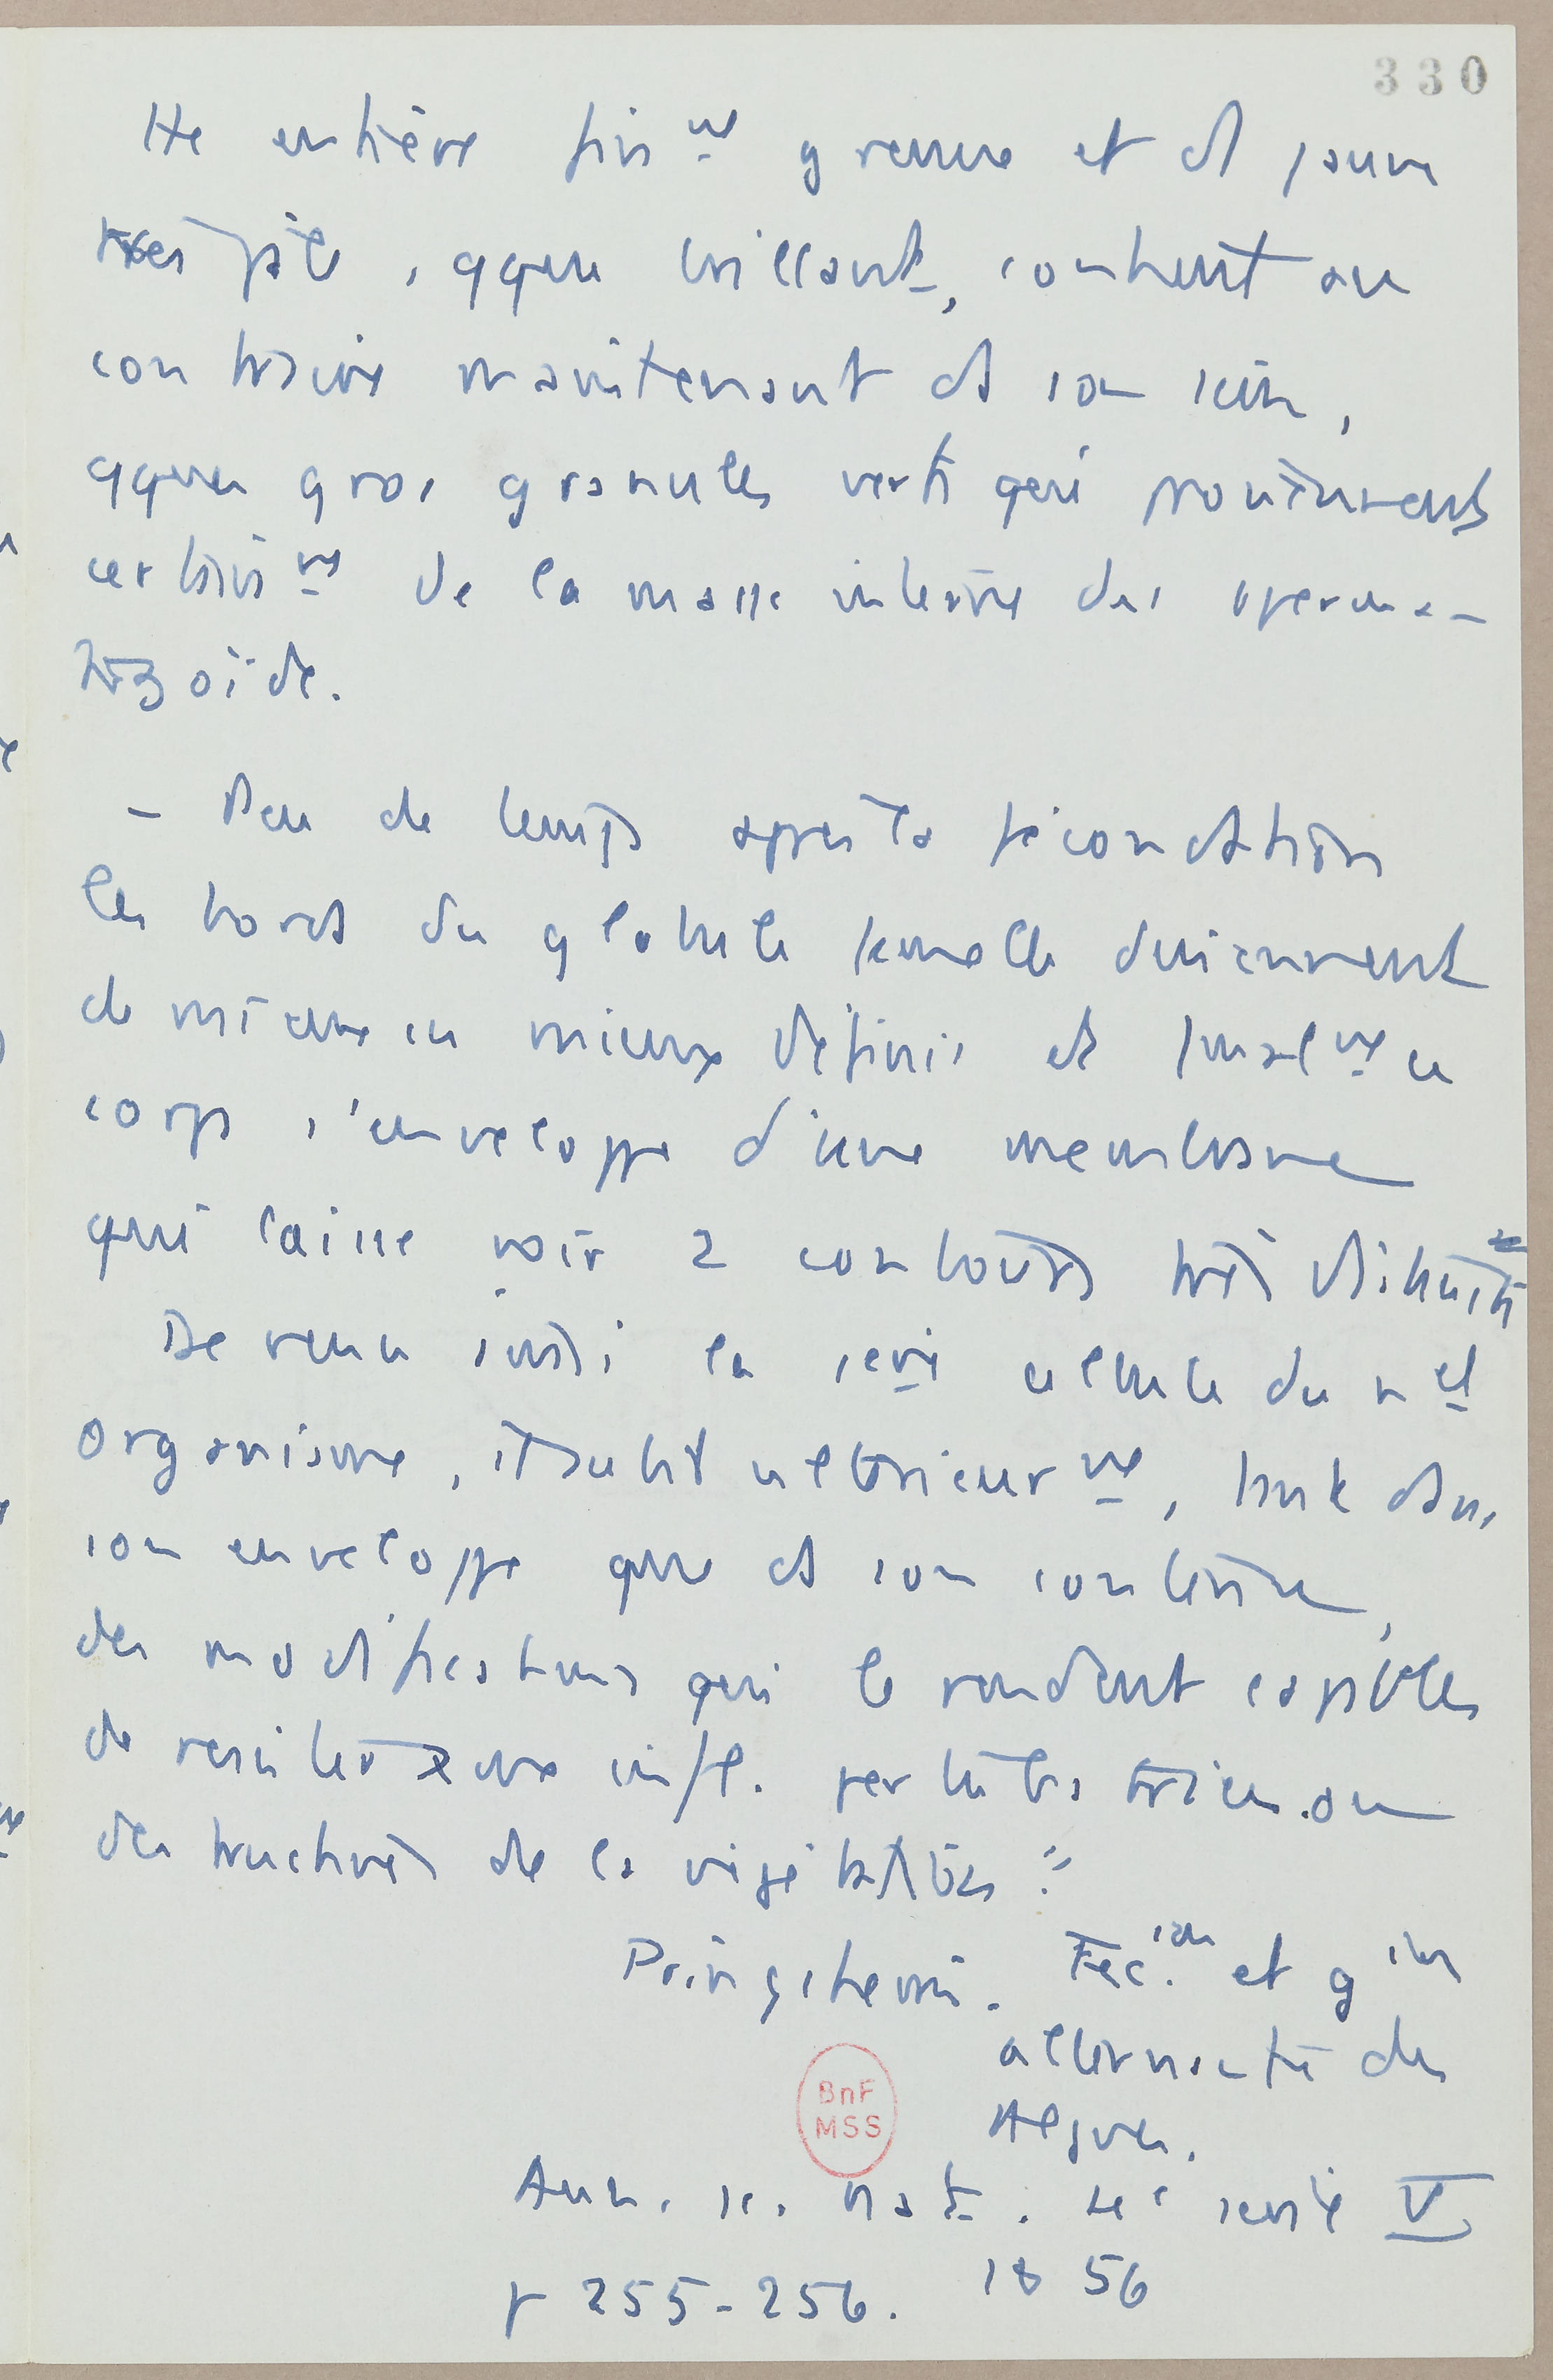 330
tte entière fin^mt grenue et d jaune
très pâle, qque brillante, contient au
contraire maintenant ds son sein,
qques gros granules verts qui proviennent
certain^mt de la masse interne des sperma-
tozoïde.
- Peu de temps après la fécondation
les bords du globule femelle deviennent
de mieux en mieux définis et final^mt ce
corps s'enveloppe d'une membrane
qui laisse voir 2 contours très distincts
Devenu ainsi la 1ère cellule du n^el
organisme, il subit ultérieur^mt, tant dans
son enveloppe que ds son contenu,
des modifications qui le rendent capables
de résister aux infl. perturbatrices ou
destructives de la végétation"
Pringsheim. Féc.^ion et g^ion
alternante des
Algues.
Ann. sc. nat. 4e série V
1856
p 255-256.
BnF
MSS